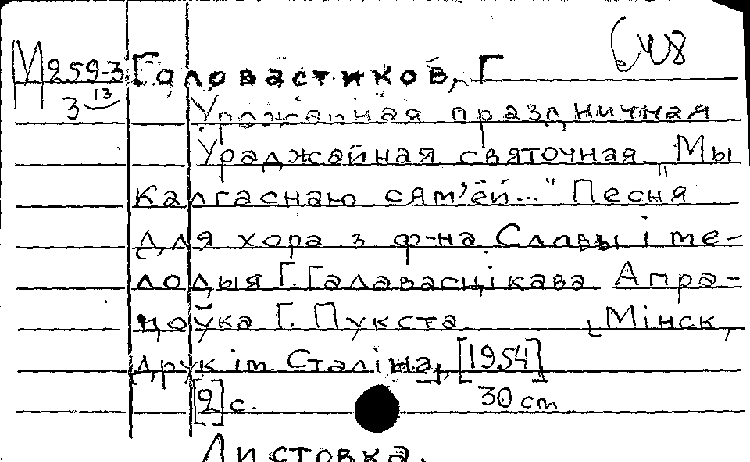 М 259-3 Головастиков, Г
3 13
Урожайная праздничная
Ураджайная святочная "Мы
калгаснаю сям'ёй..." Песня
для хора з ф-на Словы і ме-
лодыя Г. Галавасцікава Апра-
цоўка Г. Пукста [Мінск,
друк ім Сталіна], [1954]
[2] с. 30 cm
Листовка.